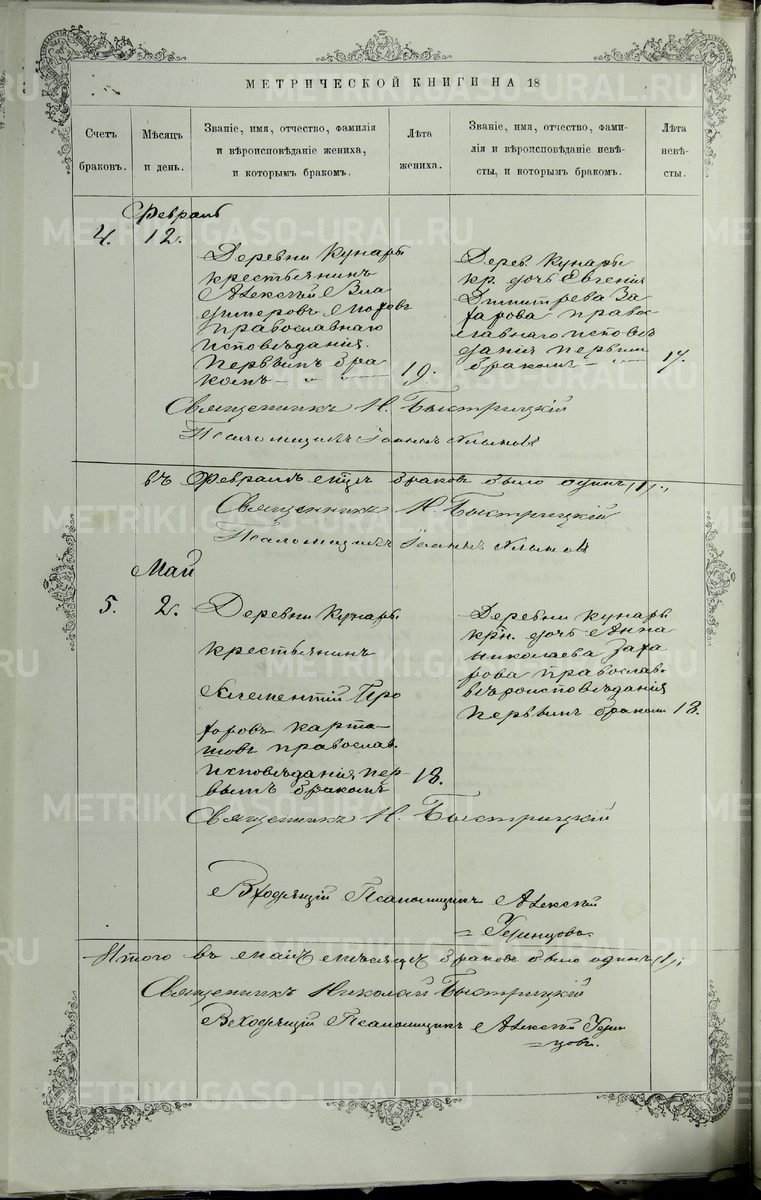 МЕТРИЧЕСКОЙ КНИГИ НА 18
Счетъ
браковъ.
Мѣсяцъ
и день.
Званіе, имя, отчество, фамилія
и вѣроисповѣданіе жениха,
и которымъ бракомъ.
Лѣта
жениха.
Званіе, имя, отчество, фами-
лія и вѣроисповѣданіе невѣ-
сты, и которымъ бракомъ.
Лѣта
невѣ-
сты.
Февраль
4. 12.
Деревни Кунары
крестьянинъ
Алексѣй Вла
димеровъ
православнаго
исповѣданія.
первымъ бра
комъ
19.
Дерев. Кунары
кр. дочь Евгенія
Димитрева За
харова правос
лавнаго исповѣ
данія первым
бракомъ
17.
Священникъ Н. Быстрицкій
Псаломщикъ Іоаннъ
въ Февралѣ мѣц. браковъ было одинъ /1/.
Священникъ Н. Быстрицкій
Псаломщикъ Іоаннъ
Май
5. 2.
Деревни Кунары
крестьянинъ
Климентій Про
хоровъ Карта-
шовъ православ.
исповѣданія пер-
вымъ бракомъ
18.
Деревни Кунары
крн. дочь Анна
Николаева Заха
рова православ.
вѣроисповѣданія
первымъ браком
18.
Священникъ Н. Быстрицкій
Псаломщикъ Алексѣй
Итого въ маѣ мѣсяцѣ браковъ было одинъ /1/;
Священникъ Николай Быстрицкій
Псаломщикъ Алексѣй
METRIKI.GASO-URAL.RU